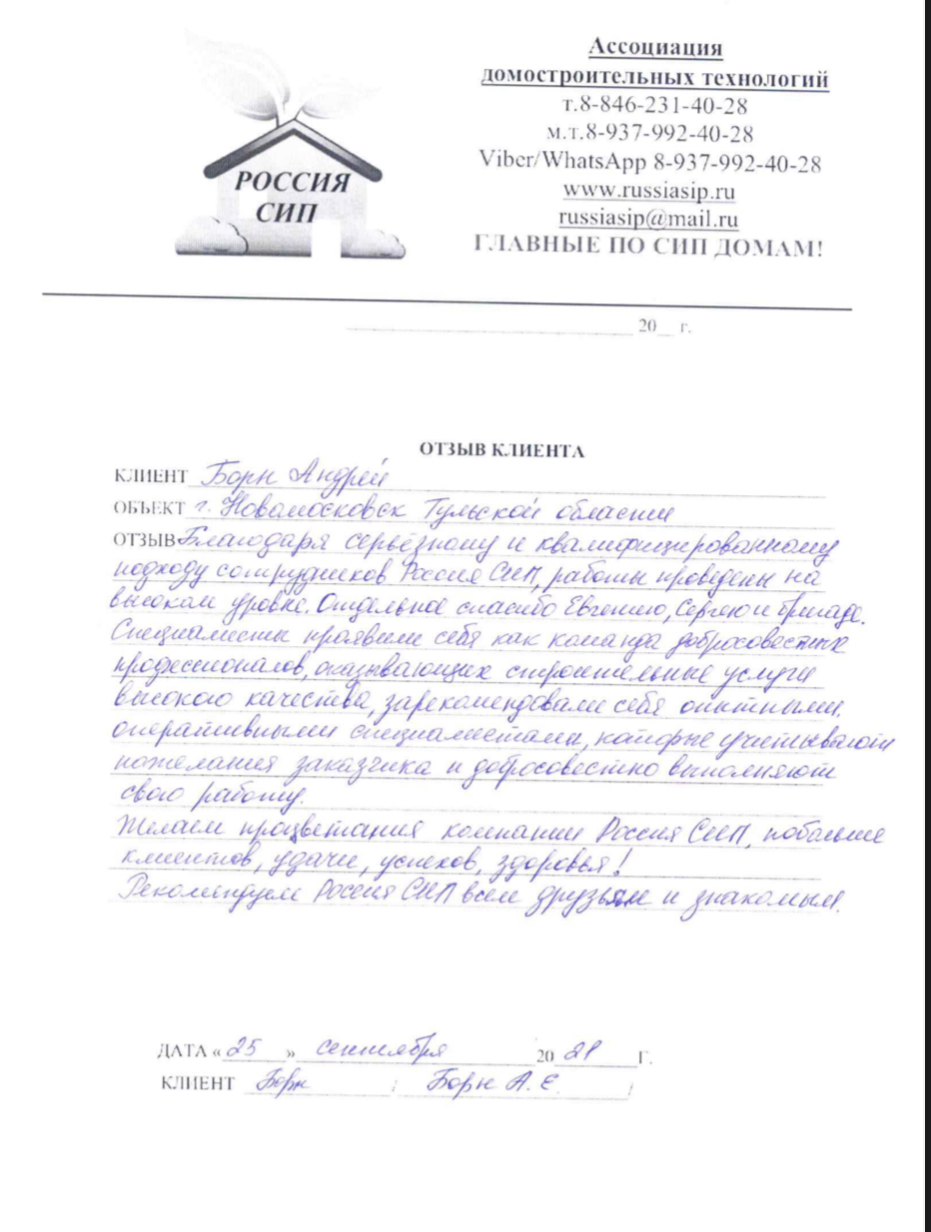 РОССИЯ
СИП
Ассоциация
домостроительных технологий
т.8-846-231-40-28
м.т.8-937-992-40-28
Viber/WhatsApp 8-937-992-40-28
www.russiasip.ru
russiasip@mail.ru
ГЛАВНЫЕ ПО СИП ДОМАМ!
20__ г.
ОТЗЫВ КЛИЕНТА
КЛИЕНТ Борн Андрей
ОБЪЕКТ г. Новомосковск Тульской области
ОТЗЫВ Благодаря серьёзному и квалифицированному
подходу сотрудников Россия СИП, работы проведены на
высоком уровне. Отдельное спасибо Евгению, Сергею и бригаде.
Специалисты проявили себя как команда добросовестных
профессионалов, оказывающих строительные услуги
высокого качества, зарекомендовали себя опытными,
оперативными специалистами, которые учитывают
пожелания заказчика и добросовестно выполняют
свою работу.
Желаем процветания компании Россия СИП, побольше
клиентов, удачи, успехов, здоровья!
Рекомендуем Россия СИП всем друзьям и знакомым.
ДАТА « 25 » сентября 20 21 г.
КЛИЕНТ Борн / Борн А. Е. /